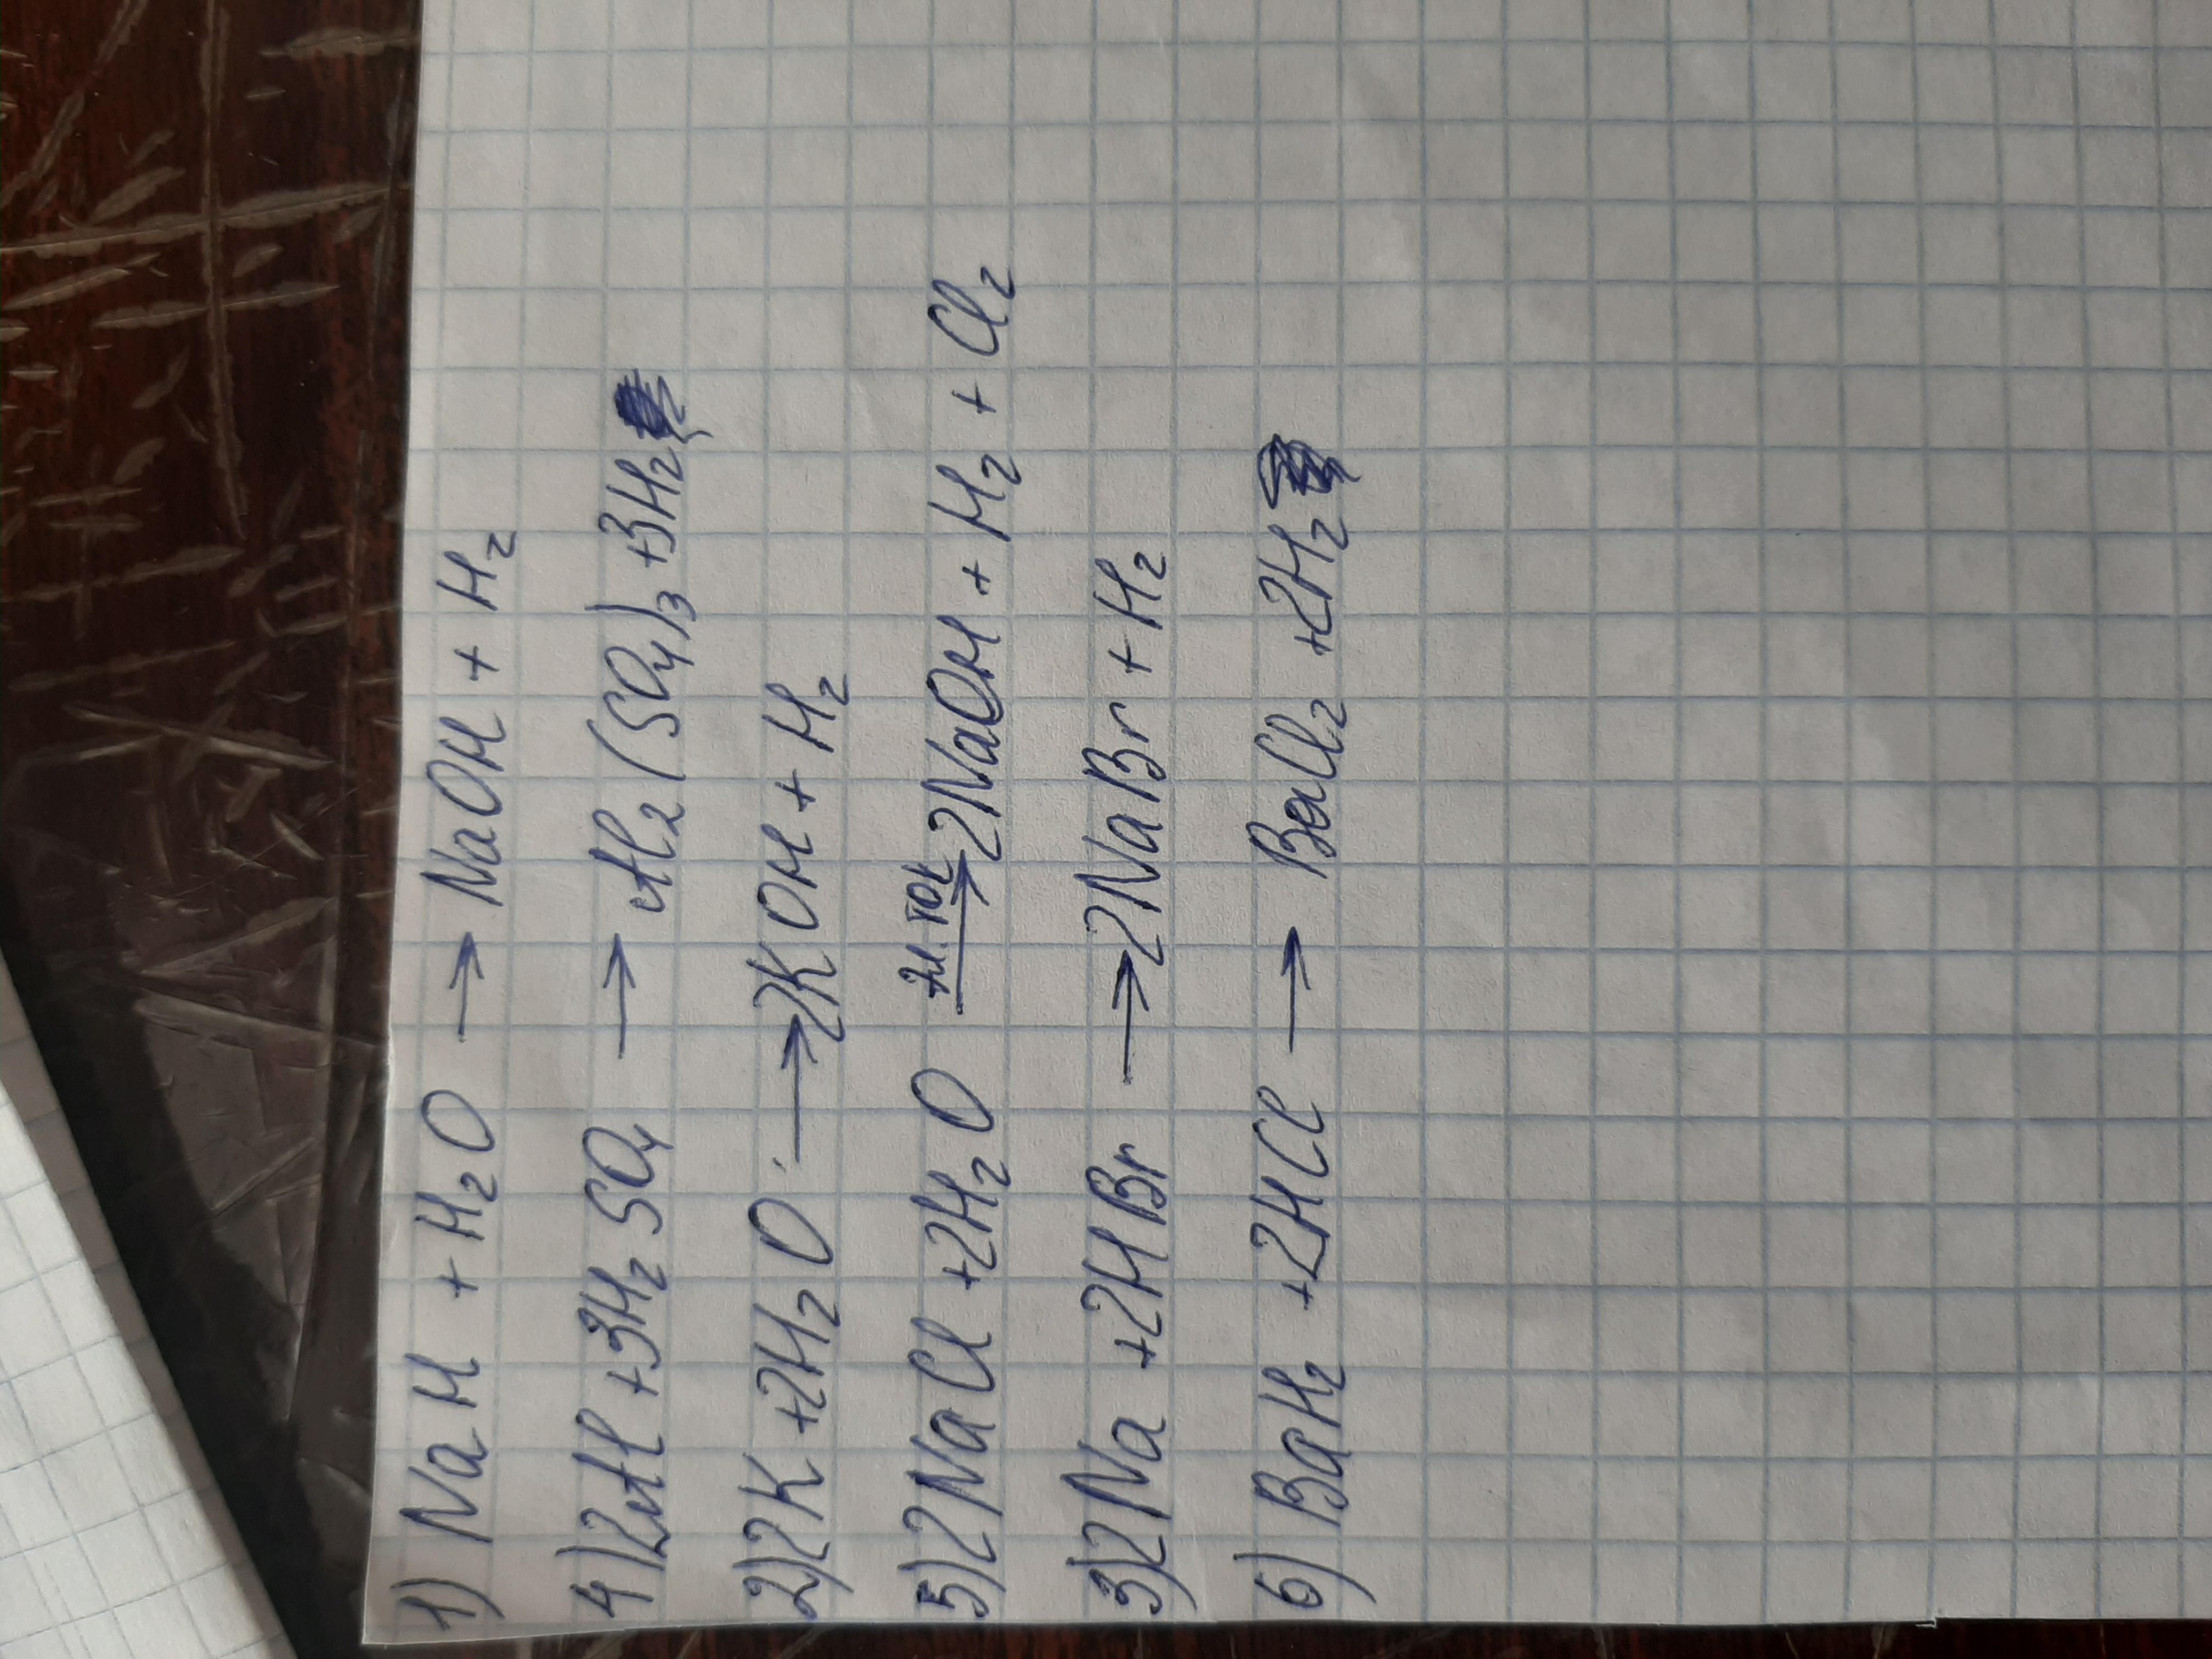 1) NaH + H₂O → NaOH + H₂
4) 2Al + 3H₂SO₄ → Al₂(SO₄)₃ + 3H₂
2) 2K + 2H₂O → 2KOH + H₂
5) 2NaCl + 2H₂O эл. ток → 2NaOH + H₂ + Cl₂
3) 2Na + 2HBr → 2NaBr + H₂
6) BaH₂ + 2HCl → BaCl₂ + 2H₂